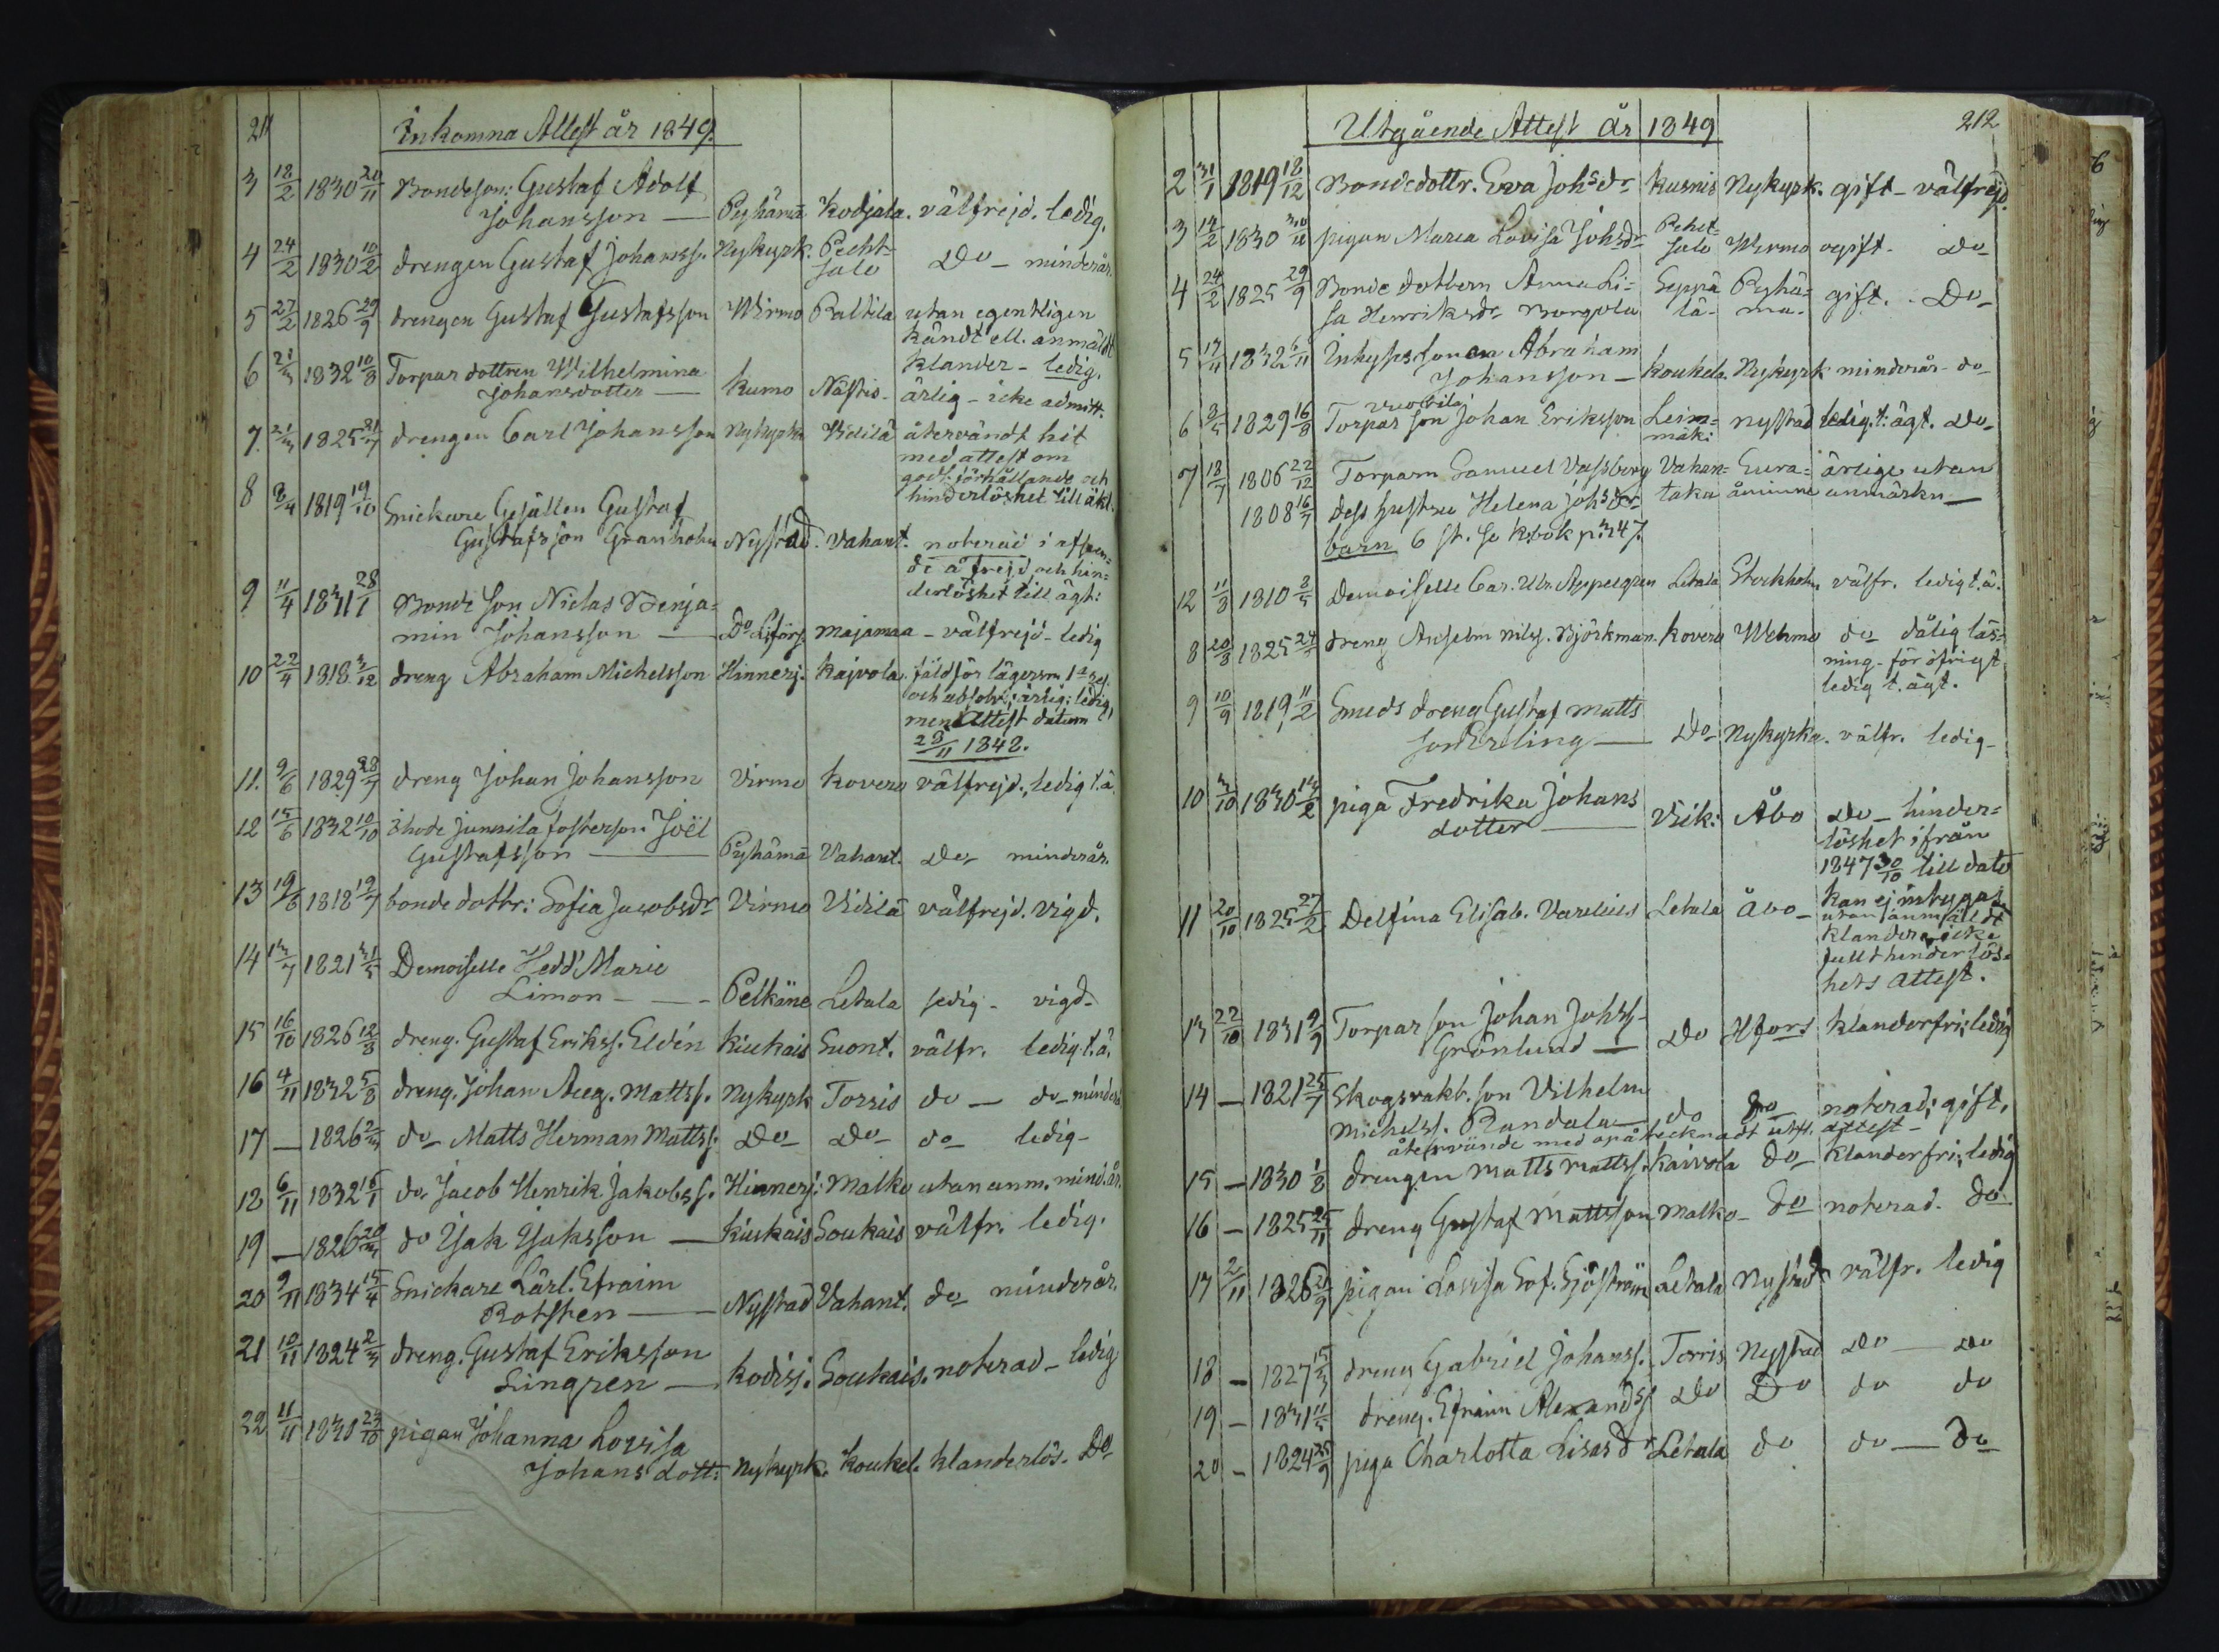 211
Inkomna Attest år 1849.
3 18/2 1830 20/11 Bondeson: Gustaf Adolf
Johansson — Pyhämä Kodjala. välfrejd. ledig.
4 24/2 1830 10/2 drengen Gustaf Johanss. Nykyrk. Pecht-
salo Do - minderår.
5 27/2 1826 29/9 drengen Gustaf Gustafsson Wirmo Paltila utan egentligen
kändt ell. anmäldt
klander - ledig.
6 21/3 1832 10/8 Torpar dottren Wilhelmina
Johansdotter — Kumo Nästis- ärlig - icke admitt.
7. 21/3 1825 21/7 drengen Carl Johansson Nykyrka Vidilä återvändt hit
med attest om
godt förhållande och
hinderlöshet till äkt.
8 8/4 1819 19/10 Snickare Gesällen Gustaf
Gustafsson Granholm Nystad. Vahant. noterad i afseen-
de å frejd och hin-
derlöshet till ägt:
9 11/4 1831 28/1 Bonde son Niclas Benja-
min Johansson — Do Lsförs. Majamaa - välfrejd - ledig
10 22/4 1818 3/12 dreng Abraham Michelsson Hinnerj. Kaivola. fäld för lägersm. 1a res.
och absolv.; ärlig; ledig,
men Attest datum
28/11 1848.
11. 9/6 1829 28/7 dreng Johan Johansson Virmo Kovero välfrejd., ledig t. ä.
12 15/6 1832 10/10 Junnila fosterson Joël
Gustafsson — Pyhämä Vahant. Do- minderår.
13 19/6 1818 19/7 bonde dottr: Sofia Jacobsdr Virmo Vidilä välfrejd. vigd.
14 13/7 1821 31/5 Demoiselle Hedd' Marie
Limon - — - Pelkäne Letala ledig - vigd-
15 16/10 1826 12/8 dreng. Gustaf Erikss. Eldén Kiukais Suont. välfr. ledig t. ä.
16 4/11 1832 5/8 dreng. Johan Aug. Mattss. Nykyrk Torris do — do - minder
17 — 1826 2/3 do- Matts Herman Mattss. Do- Do- do ledig-
18 6/11 1832 16/1 do. Jacob Henrik Jakobss. Hinnerj: Malko utan anm. mind.år.
19 — 1826 20/3 do Isak Isaksson — Kiukais Soukais välfr. ledig.
20 9/11 1834 15/4 Snickare Lärl. Efraim
Rotsten — Nystad Vahant. do- minderår.
21 10/11 1824 2/3 dreng. Gustaf Eriksson
Lingren — Kodisj. Soukais. noterad - ledig
22 11/11 1830 23/10 pigan Johanna Lovisa
Johans dott: Nykyrk. Koukel. klanderlös. Do
Utgående Attest år 1849
212
2 31/1 1819 18/12 Bondedottr. Eva Johsdr Kusnis Nykyrk. gift - välfrejd.
3 14/2 1830 pigan Maria Lovisa Johsdr Pehet-
salo Wirmo ogift. Do-
4 24/2 1825 29/9 Bonde dottern Anna Li-
sa Henriksdr Borgola Seppä-
lä- Pyhä-
ma- gift. - Do-
5 17/4 1832 6/11 Inhyses sonen Abraham
Johansson — Koukela. Nykyrk minderår - do-
6 3/5 1829 16/8 Torpar son Johan Eriksson Lein-
mäk: Nystad ledig. t. ägt. Do-
7 18/7 1806 22/12 Torparn Samuel Vassberg Vahan-
taka Eura-
åminne ärlige utan
anmärkn —
1808 16/7 dess hustru Helena Johsdr
barn 6 st. se k.bok p: 347.
12 11/8 1810 8/5 Demoiselle Car. Ulr. Appelgren Letala Stockholm, välfr. ledig t. ä.
8 20/8 1825 dreng Anselm Nilss. Björkman. Kovero Wehmo do- dålig läs-
ning - för öfrigt
ledig t. ägt.
9 10/9 1819 11/2 Smeds dreng Gustaf Matts
son Erling — Do- Nykyrka. välfr. ledig-
10 3/10 1830 14/2 piga Fredrika Johans
dotter — Vik: Åbo Do - hinder-
löshet ifrån
1847 30/10 till dato
kan ej intygas
11 20/10 1825 27/2 Delfina Elisab. Varelius Letala Åbo- utan anmäldt
klander, icke
fullt hinderlös-
hets attest.
13 22/10 1831 9/9 Torpar son Johan Johss-
Grönlund — Do Hfors klanderfri; ledig
14 — 1821 25/7 Skogsvakt. son Vilhelm
Michelss. Randala — do do noterad; gift.
återvände med opåtecknadt utfl. attest-
15 — 1830 1/8 drengen Matts Mattss. Kaivola do- klanderfri; ledig
16 — 1825 25/11 dreng Gustaf Mattsson Malko- do noterad. do
17 2/11 1826 21/9 pigan Lovisa Sof. Sjöström Letala Nystad välfr. ledig
18 — 1827 15/3 dreng Gabriel Johanss. Torris Nystad Do — Do
19 — 1831 11/5 dreng. Efraim Alexandss Do Do do do
20 - 1824 25/9 piga Charlotta Lisasdr Letala do do — do